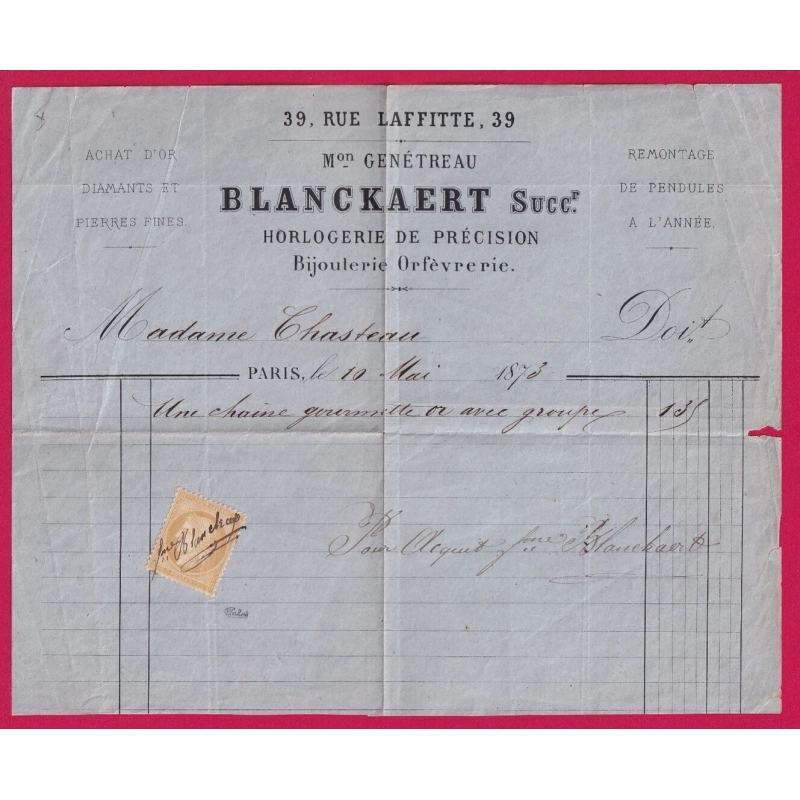 39, RUE LAFFITTE, 39
ACHAT D'OR
DIAMANTS ET
PIERRES FINES.
Mon GENÉTREAU
BLANCKAERT Succr.
HORLOGERIE DE PRÉCISION
Bijouterie Orfèvrerie.
REMONTAGE
DE PENDULES
A L'ANNÉE.
Madame Chasteau Doit
PARIS, le 10 Mai 1873
Une chaine gourmette or avec groupe 135
Pour Acquit fme Blanckaert
fme Blanckaert
Calves